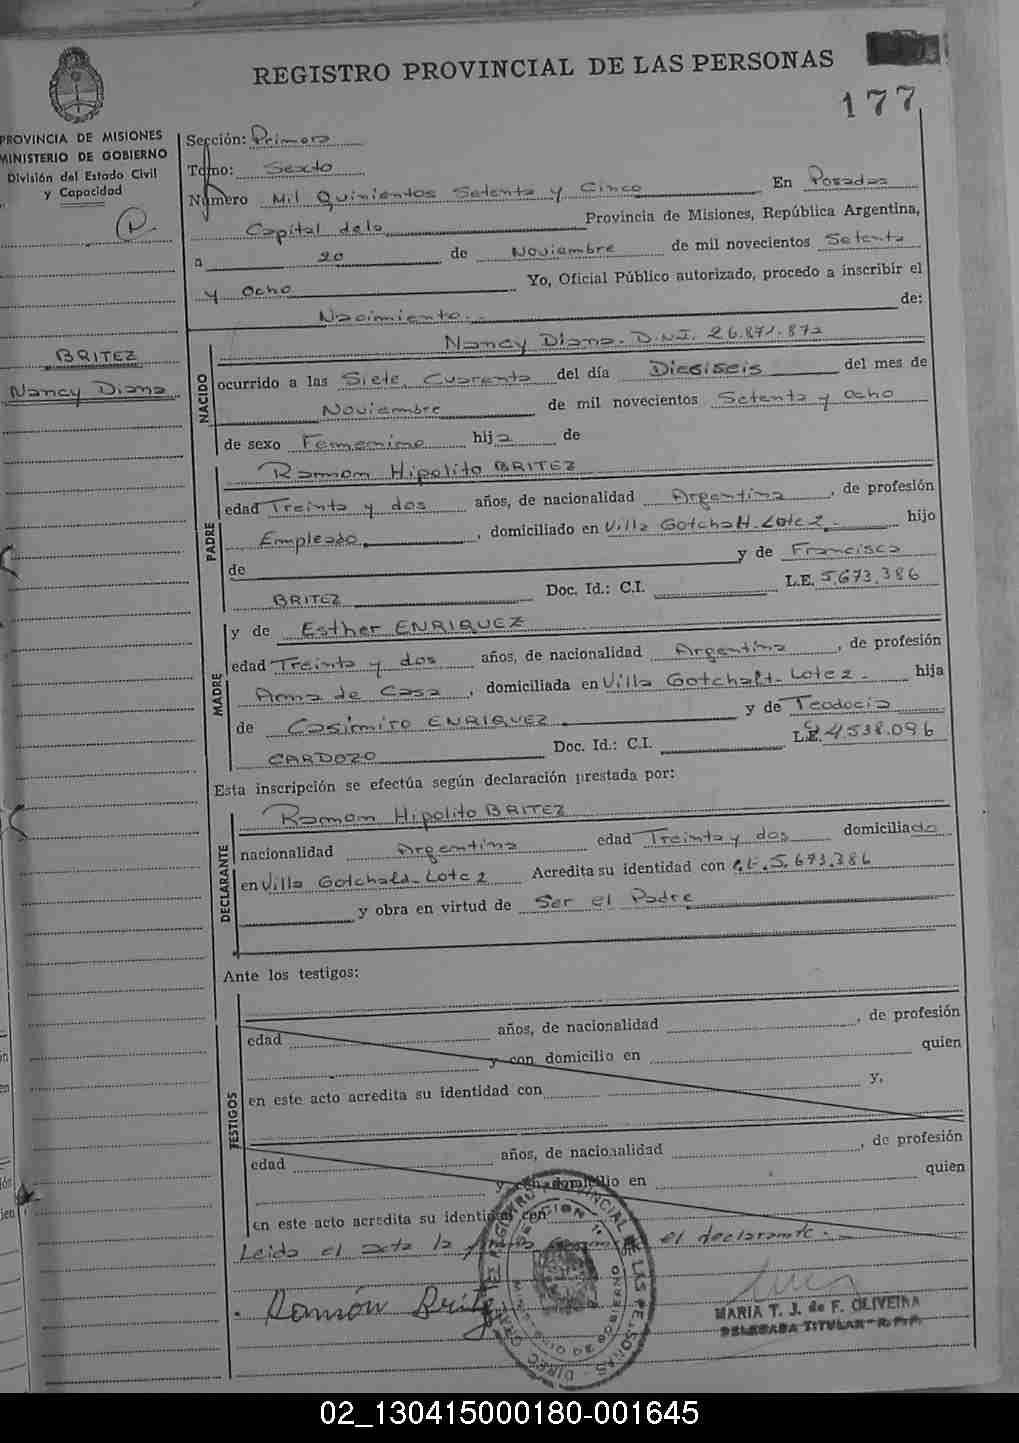 REGISTRO PROVINCIAL DE LAS PERSONAS
177
PROVINCIA DE MISIONES
MINISTERIO DE GOBIERNO
División del Estado Civil
y Capacidad
BRITEZ
Nancy Diana
Sección: Primera
Tomo: Sexto
Número Mil Quinientos Setenta y Cinco En Posadas
Capital dela Provincia de Misiones, República Argentina,
a 20 de Noviembre de mil novecientos Setenta
y Ocho Yo, Oficial Público autorizado, procedo a inscribir el
Nacimiento de:
NACIDO
Nancy Diana. D.N.I. 26.871.872
ocurrido a las Siete, Cuarenta del día Dieciseis del mes de
Noviembre de mil novecientos Setenta y ocho
de sexo Femenino hija de
PADRE
Ramon Hipolito BRITEZ
edad Treinta y dos años, de nacionalidad Argentina, de profesión
Empleado, domiciliado en Villa Gotchalt-Lote 2 hijo
de y de Francisca
BRITEZ Doc. Id.: C.I. L.E. 5.673.386
MADRE
y de Esther ENRIQUEZ
edad Treinta y dos años, de nacionalidad Argentina, de profesión
Ama de Casa, domiciliada en Villa Gotchalt-Lote 2 hija
de Casimiro ENRIQUEZ y de Teodocia
CARDOZO Doc. Id.: C.I. L.C. 4.538.096
Esta inscripción se efectúa según declaración prestada por:
DECLARANTE
Ramon Hipolito BRITEZ
nacionalidad Argentina edad Treinta y dos domiciliado
en Villa Gotchald-Lote 2 Acredita su identidad con L.E. 5.673.386
y obra en virtud de Ser el Padre
Ante los testigos:
TESTIGOS
edad años, de nacionalidad , de profesión
y con domicilio en quien
en este acto acredita su identidad con y,
edad años, de nacionalidad , de profesión
y con domicilio en quien
en este acto acredita su identidad con
Leida el acta la firma el declarante.
Ramón Britez
MARIA T. J. de F. OLIVEIRA
DELEGADA TITULAR - R.P.P.
02_130415000180-001645